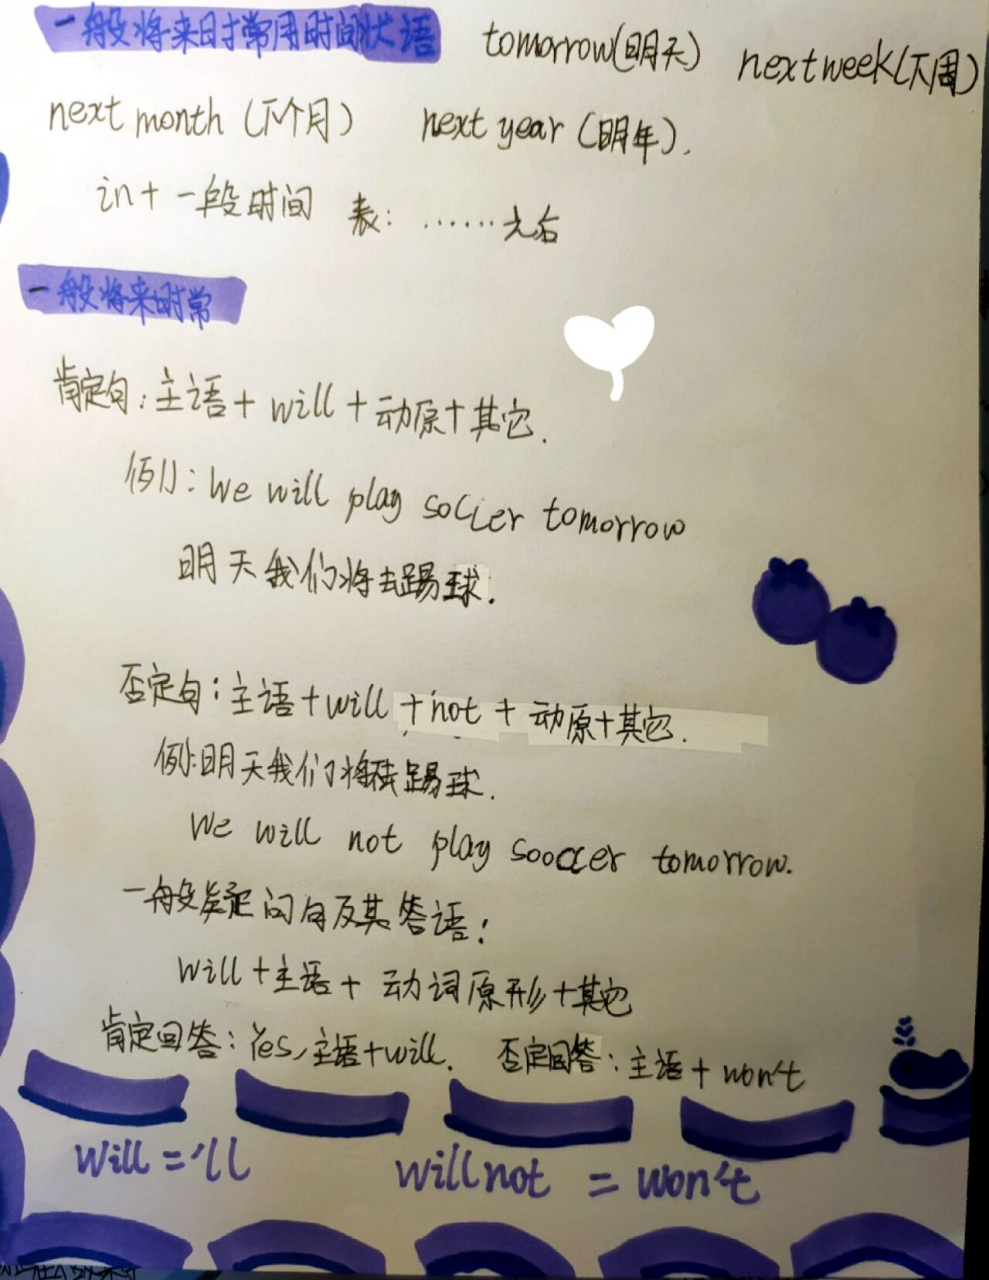 一般将来时常用时间状语 tomorrow(明天) next week(下周)
next month (下个月) next year (明年).
in+ 一段时间 表: ……之后
一般将来时常
肯定句: 主语+ will + 动原+其它.
例: We will play soccer tomorrow
明天我们将去踢球.
否定句: 主语+will +not + 动原+其它.
例:明天我们将踢球.
We will not play sooccer tomorrow.
一般疑问句及其答语:
will +主语+ 动词原形+其它
肯定回答: Yes, 主语+will. 否定回答: 主语+ won't
will = 'll will not = won't